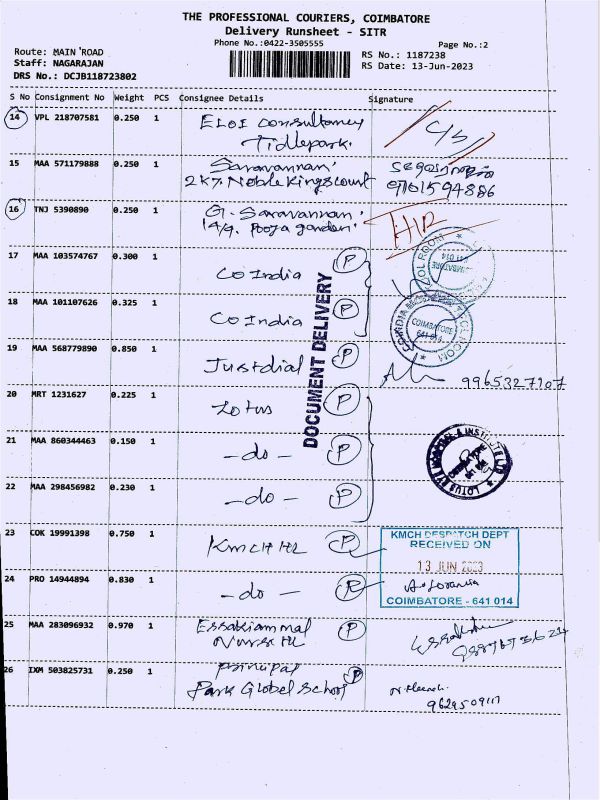 THE PROFESSIONAL COURIERS, COIMBATORE
Delivery Runsheet - SITR
Phone No.:0422-3505555
Page No.:2
Route: MAIN ROAD
Staff: NAGARAJAN
DRS No.: DCJB118723802
RS No.: 1187238
RS Date: 13-Jun-2023
S No Consignment No Weight PCS Consignee Details Signature
14 VPL 218707581 0.250 1 ELOI Consultancy
Tidlepark.
15 MAA 571179888 0.250 1 Saravannan.
2K7. Noble Kingscourt
16 TNJ 5390890 0.250 1 G. Saravannan.
14/9. Pooja garden.
HIR
17 MAA 103574767 0.300 1 Co India P
18 MAA 101107626 0.325 1 Co India P
COIMBATORE
641 014
DOCUMENT DELIVERY
19 MAA 568779890 0.850 1 Justdial P
9965327107
20 MRT 1231627 0.225 1 Lotus P
21 MAA 860344463 0.150 1 -do- P
22 MAA 298456982 0.230 1 -do- P
23 COK 19991398 0.750 1 KMCH HL P
KMCH DESPATCH DEPT
RECEIVED ON
13 JUN 2023
COIMBATORE - 641 014
24 PRO 14944894 0.830 1 -do- P
25 MAA 283096932 0.970 1 Essakiammal P
26 IXM 503825731 0.250 1 Principal P
Park Global School
9629509117